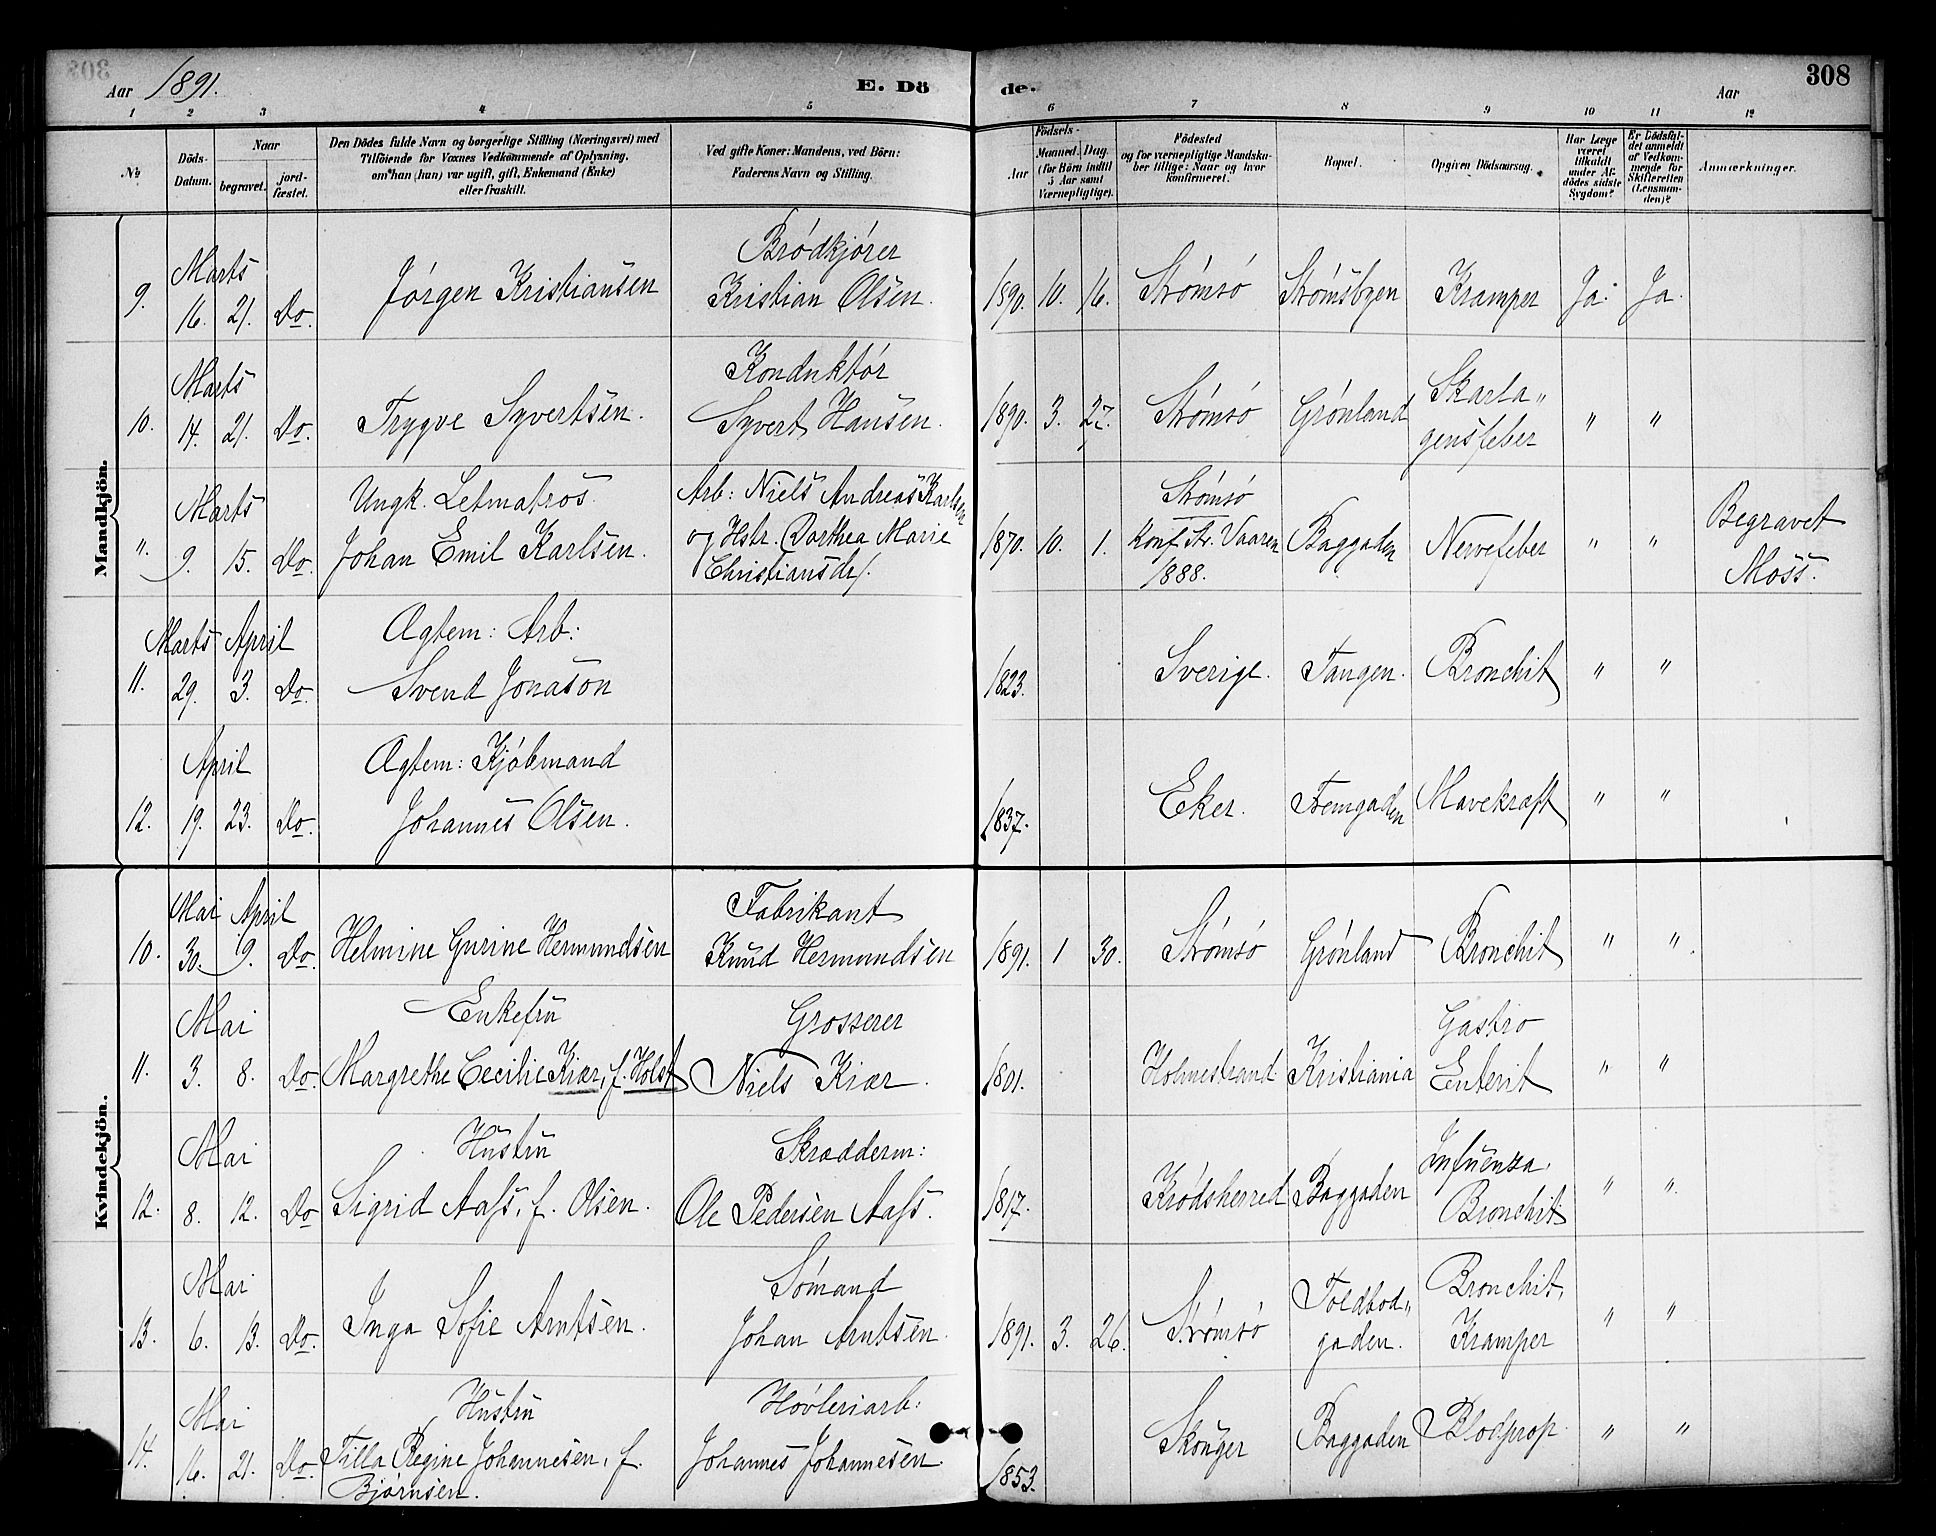 308
Aar 1891.
E. Dö
de.
Aar
1 2 3 4 5 6 7 8 9 10 11 12
No
Döds-
Datum.
Naar
begravet.
jord-
fæstet.
Den Dödes fulde Navn og borgerlige Stilling (Næringsvei) med
Tilföiende for Voxnes Vedkommende af Oplysning,
om han (hun) var ugift, gift, Enkemand (Enke)
eller fraskilt.
Ved gifte Koner: Mandens, ved Börn:
Faderens Navn og Stilling.
Födsels-
Aar
Maaned.
Dag.
(for Börn indtil
5 Aar samt
Værnepligtige).
Födested
og for værnepligtige Mandska-
ber tillige: Naar og hvor
konfirmeret.
Bopæl.
Opgiven Dödsaarsag.
Har Læge
været
tilkaldt
under Af-
dödes sidste
Sygdom?
Er Dödsfal-
det anmeldt
af Vedkom-
mende for
Skifteretten
(Lensman-
den)?
Anmærkninger.
Mandkjön.
9. Marts 16. 21. Do. Jörgen Kristiansen
Brödkjörer
Kristian Olsen.
1890. 10. 16. Strömsö Strömsbyen Kramper Ja. Ja.
10. Marts 14. 21. Do. Trygve Syvertsen.
Konduktör
Syvert Hansen.
1890. 3. 27. Strömsö Grönland Skarla„
gensfeber „ „
„. Marts 9. 15. Do. Ungk. Letmatros.
Johan Emil Karlsen.
Arb: Niels Andreas Karlsen
og Hstr. Dorthea Marie
Christiansd/.
1870. 10. 1. Strömsö
Konf. Str. Vaaren
1888.
Baggaden Nervefeber „ „ Begravet
Moss.
11. Marts 29. April 3. Do. Ægtem: Arb:
Svend Jonason
1823. Sverige. Tangen. Bronchit „ „
12. April 19. 23. Do. Ægtem: Kjöbmand
Johannes Olsen.
1837. Eker. Fremgaden Mavekræft „ „
Kvindekjön.
10. Mai 30. April 9. Do. Helmine Gurine Hermundsen
Fabrikant
Knud Hermundsen
1891. 1 30. Strömsö Grönland Bronchit „ „.
11. Mai 3. 8. Do. Enkefru
Margrethe Cecilie Kiær, f. Holst
Grosserer
Niels Kiær.
1801. Holmestrand Kristiania Gastro
Enterit „ „
12. Mai 8. 12. Do Hustru
Sigrid Aass, f. Olsen.
Skrædderm:
Ole Pedersen Aass.
1817. Krödsherred Baggaden Influenza.
Bronchit „ „.
13. Mai 6. 13. Do. Inga Sofie Arntsen.
Sömand
Johan Arntsen.
1891. 3. 26. Strömsö Toldbod„
gaden. Bronchit,
Kramper „ „
14. Mai 16. 21. Do. Hustru
Tilla Regine Johannesen, f.
Bjørnsen.
Hövleriarb:
Johannes Johannesen.
1853. Skouger Baggaden Blodprop „ „